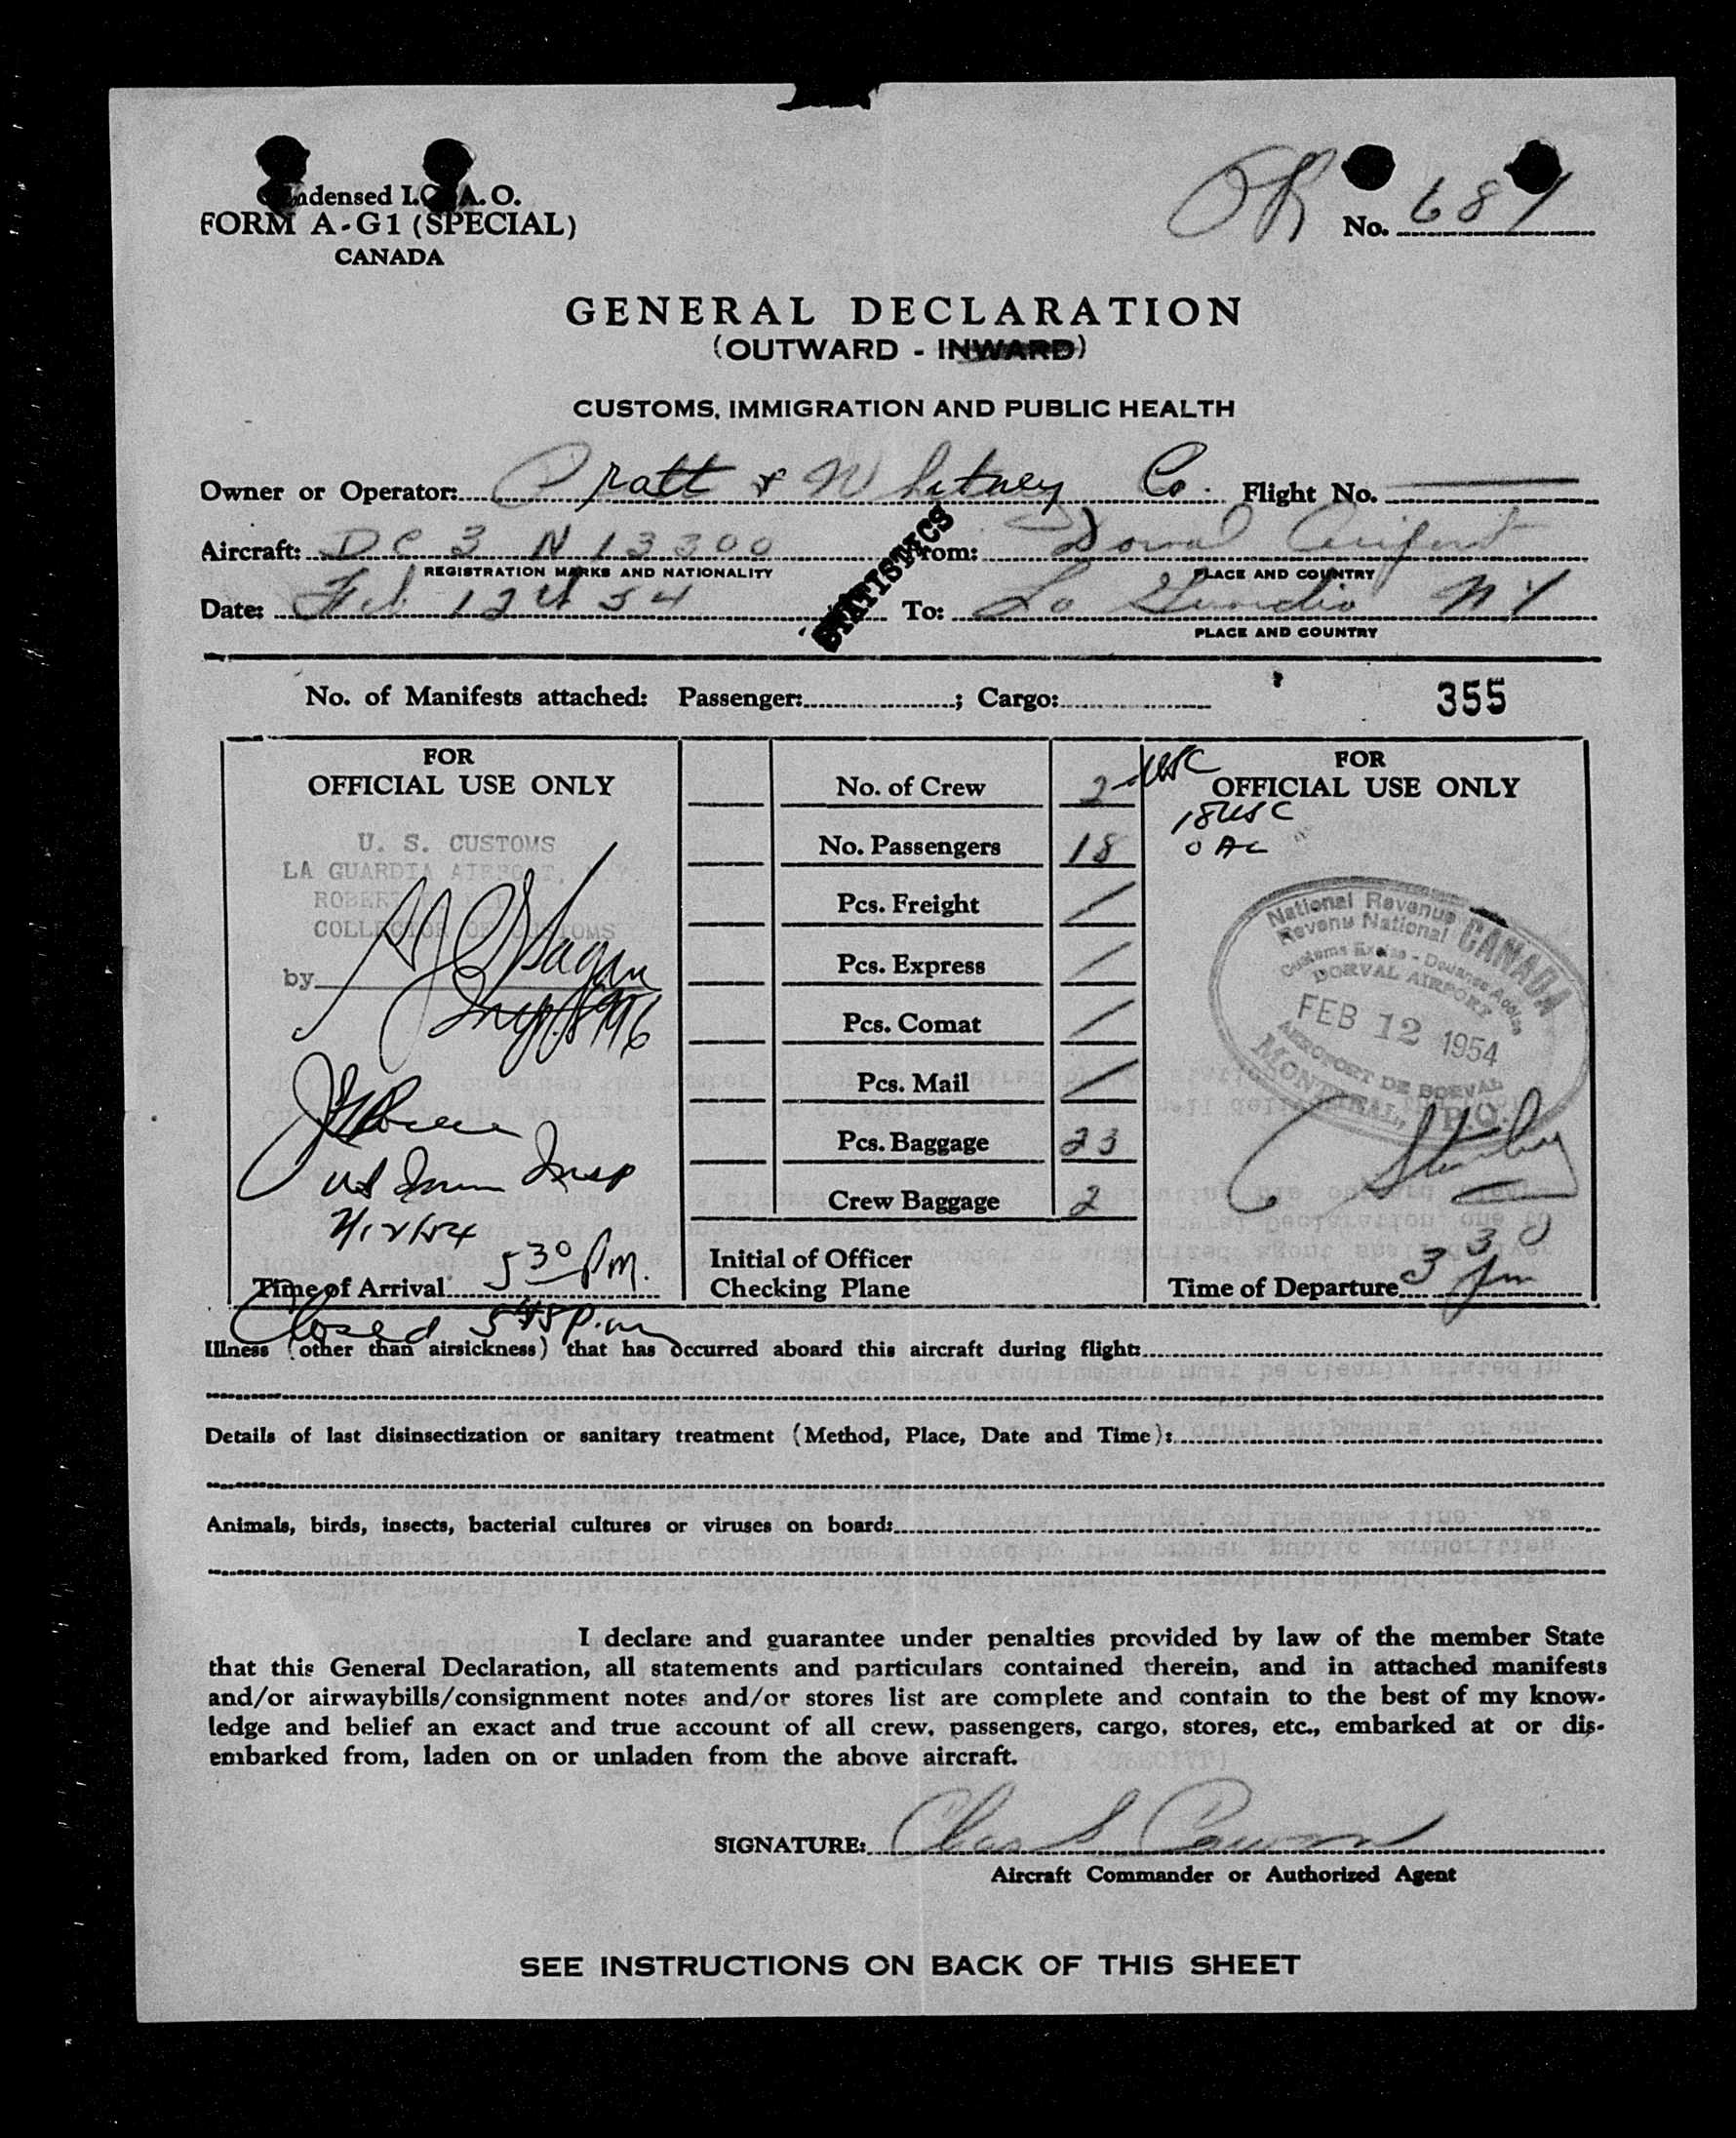 Condensed I.C.A.O.
FORM A-G1 (SPECIAL)
CANADA
OK
No. 68
GENERAL DECLARATION
(OUTWARD - INWARD)
CUSTOMS, IMMIGRATION AND PUBLIC HEALTH
Owner or Operator: Pratt & Whitney Co. Flight No.
Aircraft: DC 3 N 13300 From: Dorval Airport
REGISTRATION MARKS AND NATIONALITY PLACE AND COUNTRY
STATISTICS
Date: Feb 12th 54 To: La Guardia NY
PLACE AND COUNTRY
No. of Manifests attached: Passenger: ; Cargo: 355
FOR
OFFICIAL USE ONLY
U. S. CUSTOMS
LA GUARDIA AIRPORT,
COLLECTOR OF CUSTOMS
by
Insp
US Imm Insp
2/12/54
Time of Arrival 530 P.M.
Closed 545 P.m
No. of Crew 2 - USC
No. Passengers 18
Pcs. Freight /
Pcs. Express /
Pcs. Comat /
Pcs. Mail /
Pcs. Baggage 23
Crew Baggage 2
Initial of Officer
Checking Plane
FOR
OFFICIAL USE ONLY
18 USC
0 AC
National Revenue
Revenu National
CANADA
Customs Excise - Douanes Accise
DORVAL AIRPORT
FEB 12 1954
AEROPORT DE DORVAL
MONTREAL, P.Q.
Time of Departure 3 30 pm
Illness (other than airsickness) that has occurred aboard this aircraft during flight:
Details of last disinsectization or sanitary treatment (Method, Place, Date and Time):
Animals, birds, insects, bacterial cultures or viruses on board:
I declare and guarantee under penalties provided by law of the member State
that this General Declaration, all statements and particulars contained therein, and in attached manifests
and/or airwaybills/consignment notes and/or stores list are complete and contain to the best of my know-
ledge and belief an exact and true account of all crew, passengers, cargo, stores, etc., embarked at or dis-
embarked from, laden on or unladen from the above aircraft.
SIGNATURE: Chas S Cowan
Aircraft Commander or Authorized Agent
SEE INSTRUCTIONS ON BACK OF THIS SHEET